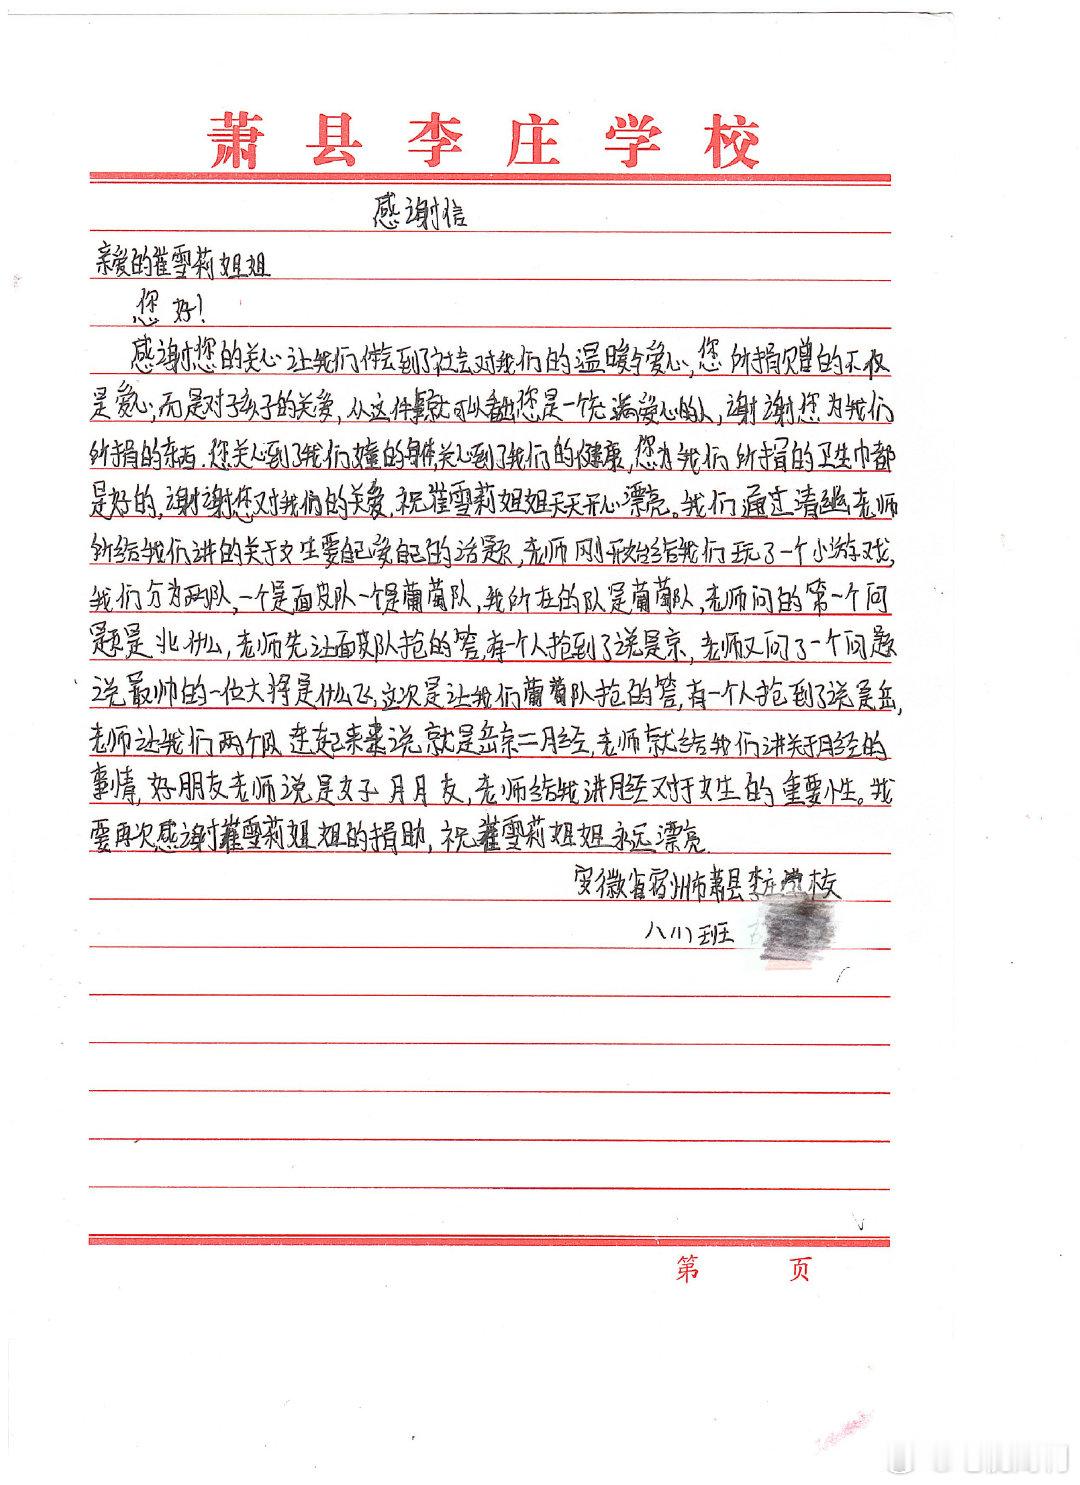 萧县李庄学校
感谢信
亲爱的崔雪莉姐姐
您好!
感谢您的关心让我们体会到了社会对我们的温暖与爱心,您所捐赠的不仅
是爱心,而是对子孩子的关爱,从这件事就可以看出您是一个充满爱心的人,谢谢您为我们
所捐的东西.您关心到了我们女童的身体,关心到了我们的健康,您为我们所捐的卫生巾都
是好的,谢谢您对我们的关爱,祝崔雪莉姐姐天天开心漂亮。我们通过清幽老师
所给我们讲的关于女生要自己爱自己的话题,老师刚开始给我们玩了一个小游戏,
我们分为两队,一个是面皮队一个是葡萄队,我所在的队是葡萄队,老师问的第一个问
题是北什么,老师先让面皮队抢的答,有一个人抢到了说是京,老师又问了一个问题
说最帅的一位大将是什么飞,这次是让我们葡萄队抢的答,有一个人抢到了说是岳,
老师让我们两个队连起来说就是岳京=月经,老师就给我们讲关于月经的
事情,好朋友老师说是女子月月友,老师给我讲月经对于女生的重要性。我
要再次感谢崔雪莉姐姐的捐助,祝崔雪莉姐姐永远漂亮.
安徽省宿州市萧县李庄学校
八(1)班
第 页